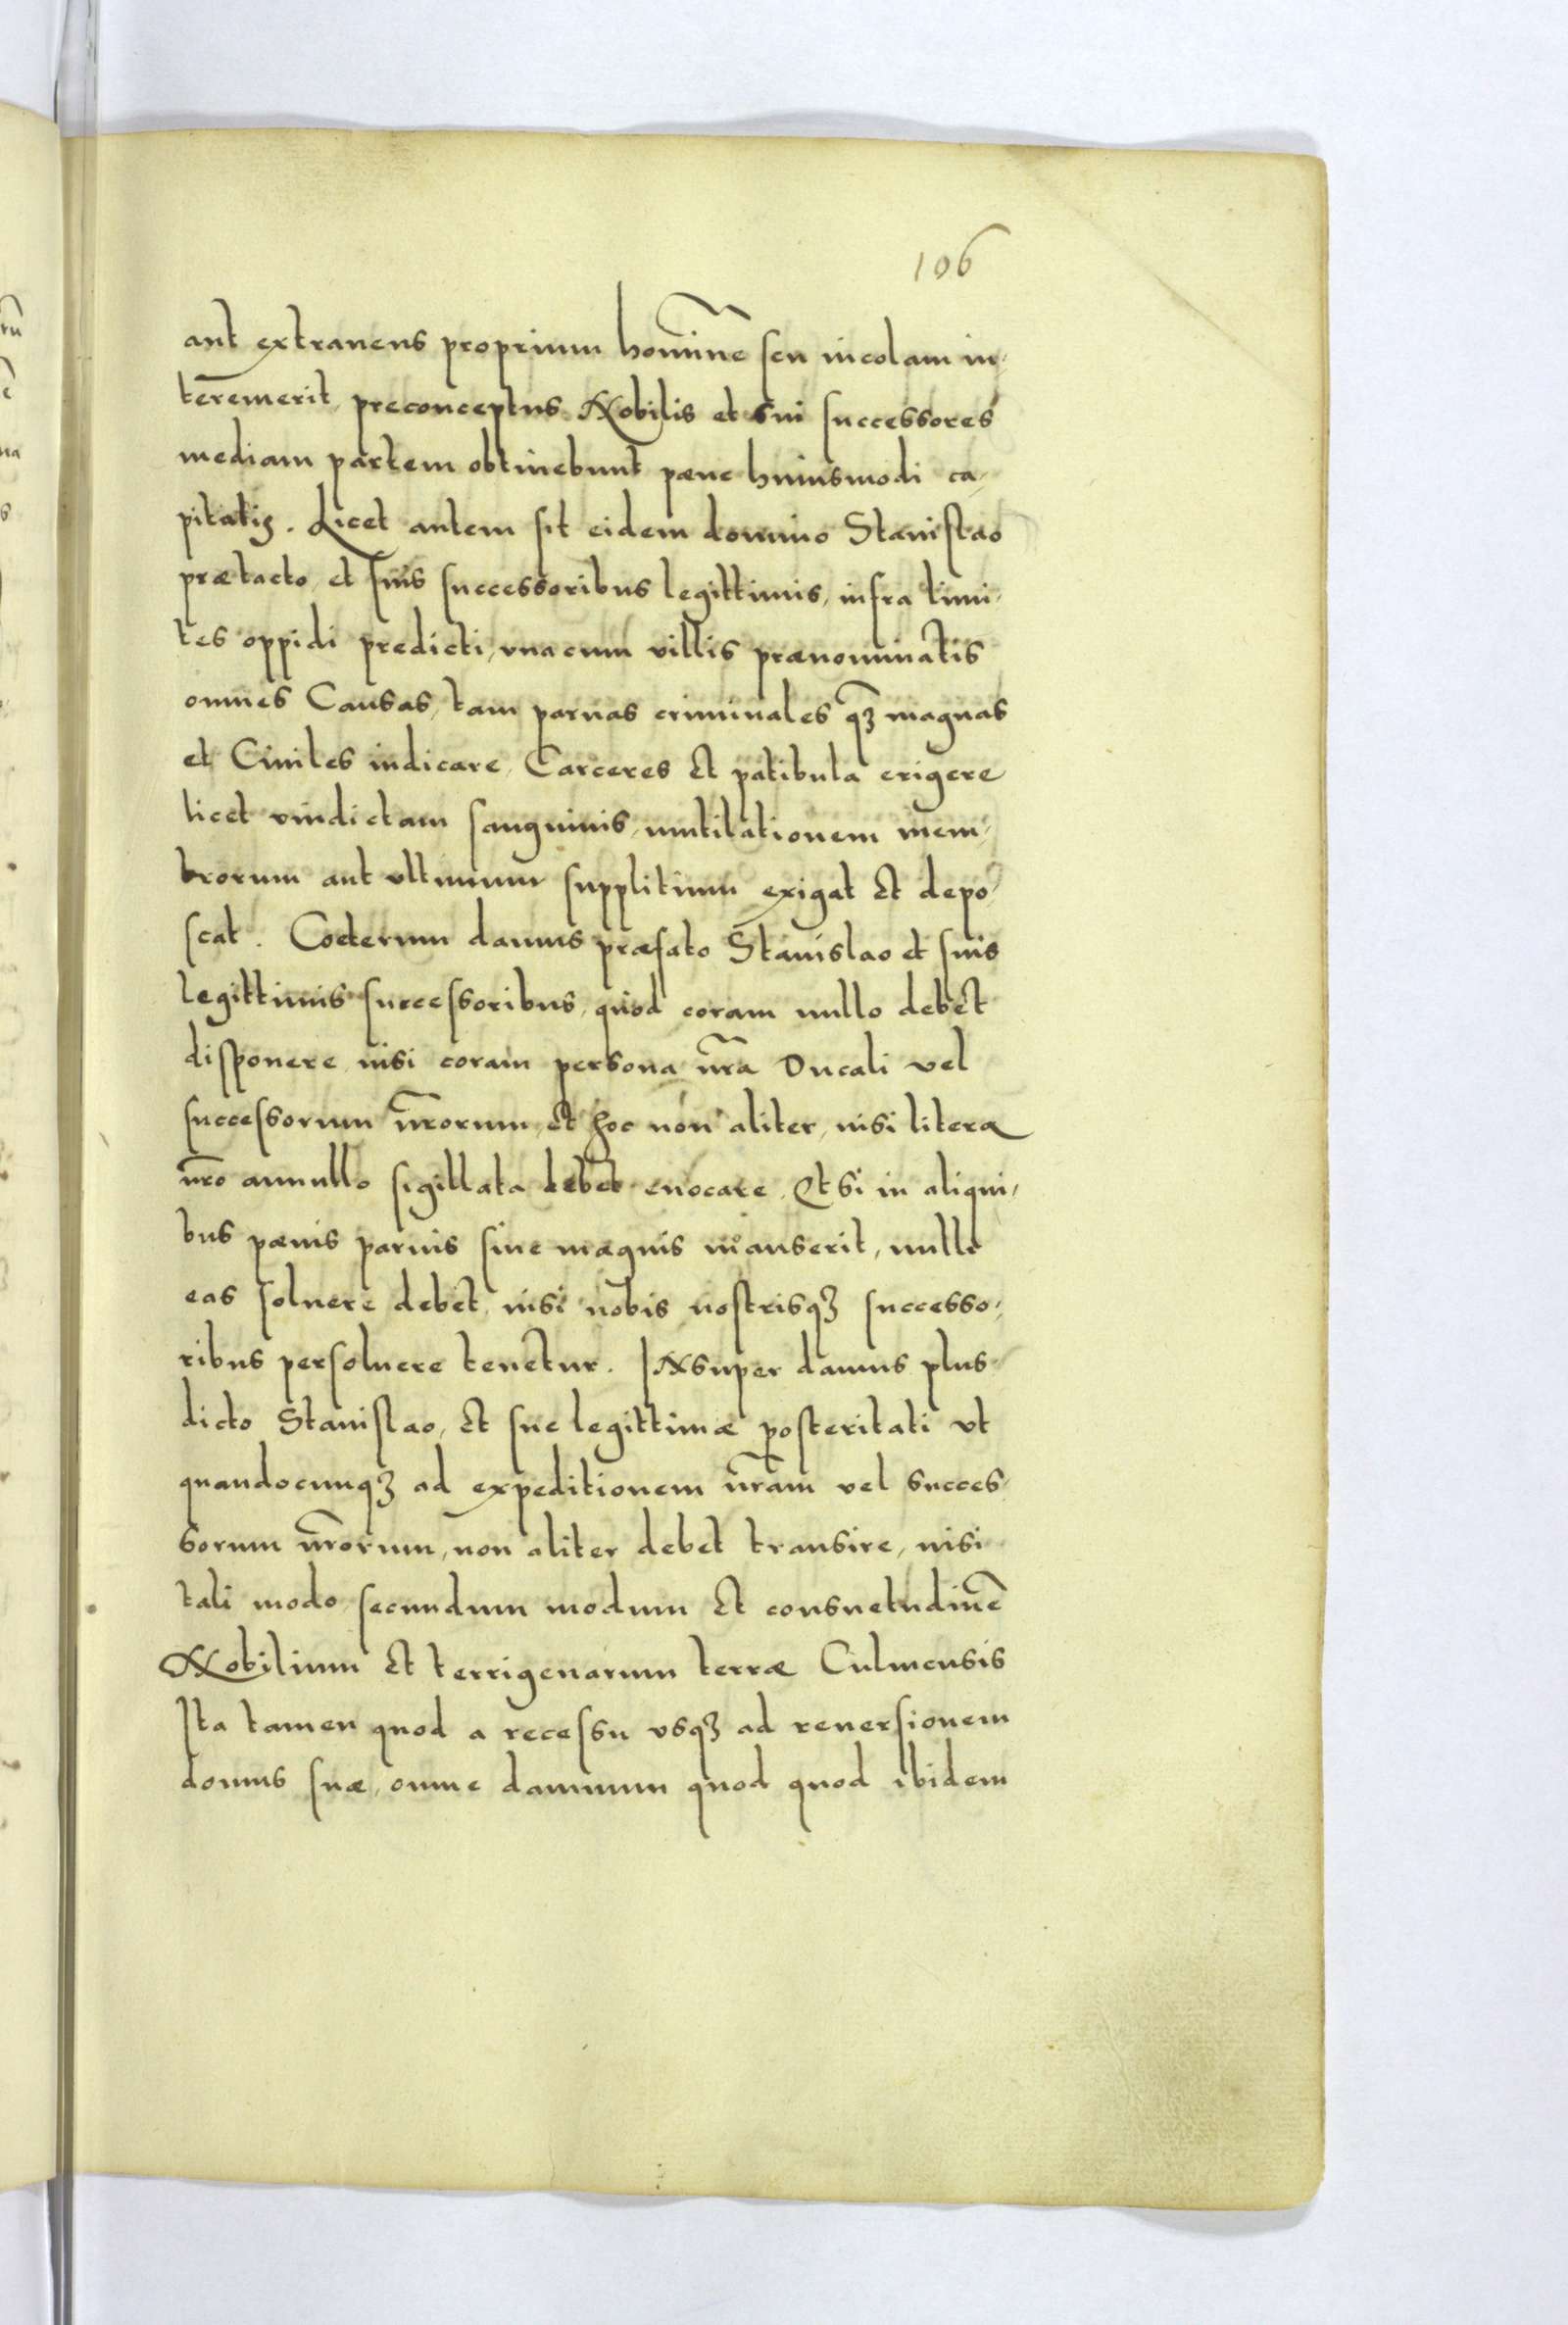 106
aut extraneus proprium homīnē seu incolam in-
terēmerit, preconceptus Nobilis et sui successores
mediam partem obtinebunt pænę huiusmodi ca-
pitatis. Licet autem sit eidem domino Stanislao
prætacto, et suis successoribus legittimis, infra limi-
tes oppidi predicti, vnacum villis prænominatis
omnes Causas, tam paruas criminales q̃ʒ magnas
et Ciuiles iudicare, Carceres et patibula erigere
licet vindictam sanguinis, mutilationem mem-
brorum aut vltimum supplitium exigat et depo-
scat. Cœterum damus præfato Stanislao et suis
legittimis successoribus, quod coram nullo debet
disponere, nisi coram persona nr̃a Ducali vel
successorum nr̃orum, et hoc non aliter, nisi litera
nr̃o annullo sigillata debet euocare, Et si in aliqui-
bus pænis paruis siue magnis manserit, nulli
eas soluere debet, nisi nobis nostrisqʒ successo-
ribus persoluere tenetur. INsuper damus plus
dicto Stanislao, et sue legittimæ posteritati vt
quandocunqʒ ad expeditionem nr̃am vel succes-
sorum nr̃orum, non aliter debet transire, nisi
tali modo, secundum modum et consuetudinē
Nobilium et terrigenarum terræ Culmensis
Ita tamen quod a recessu vsqʒ ad reuersionem
domus suæ, omne damnum quod quod ibidem